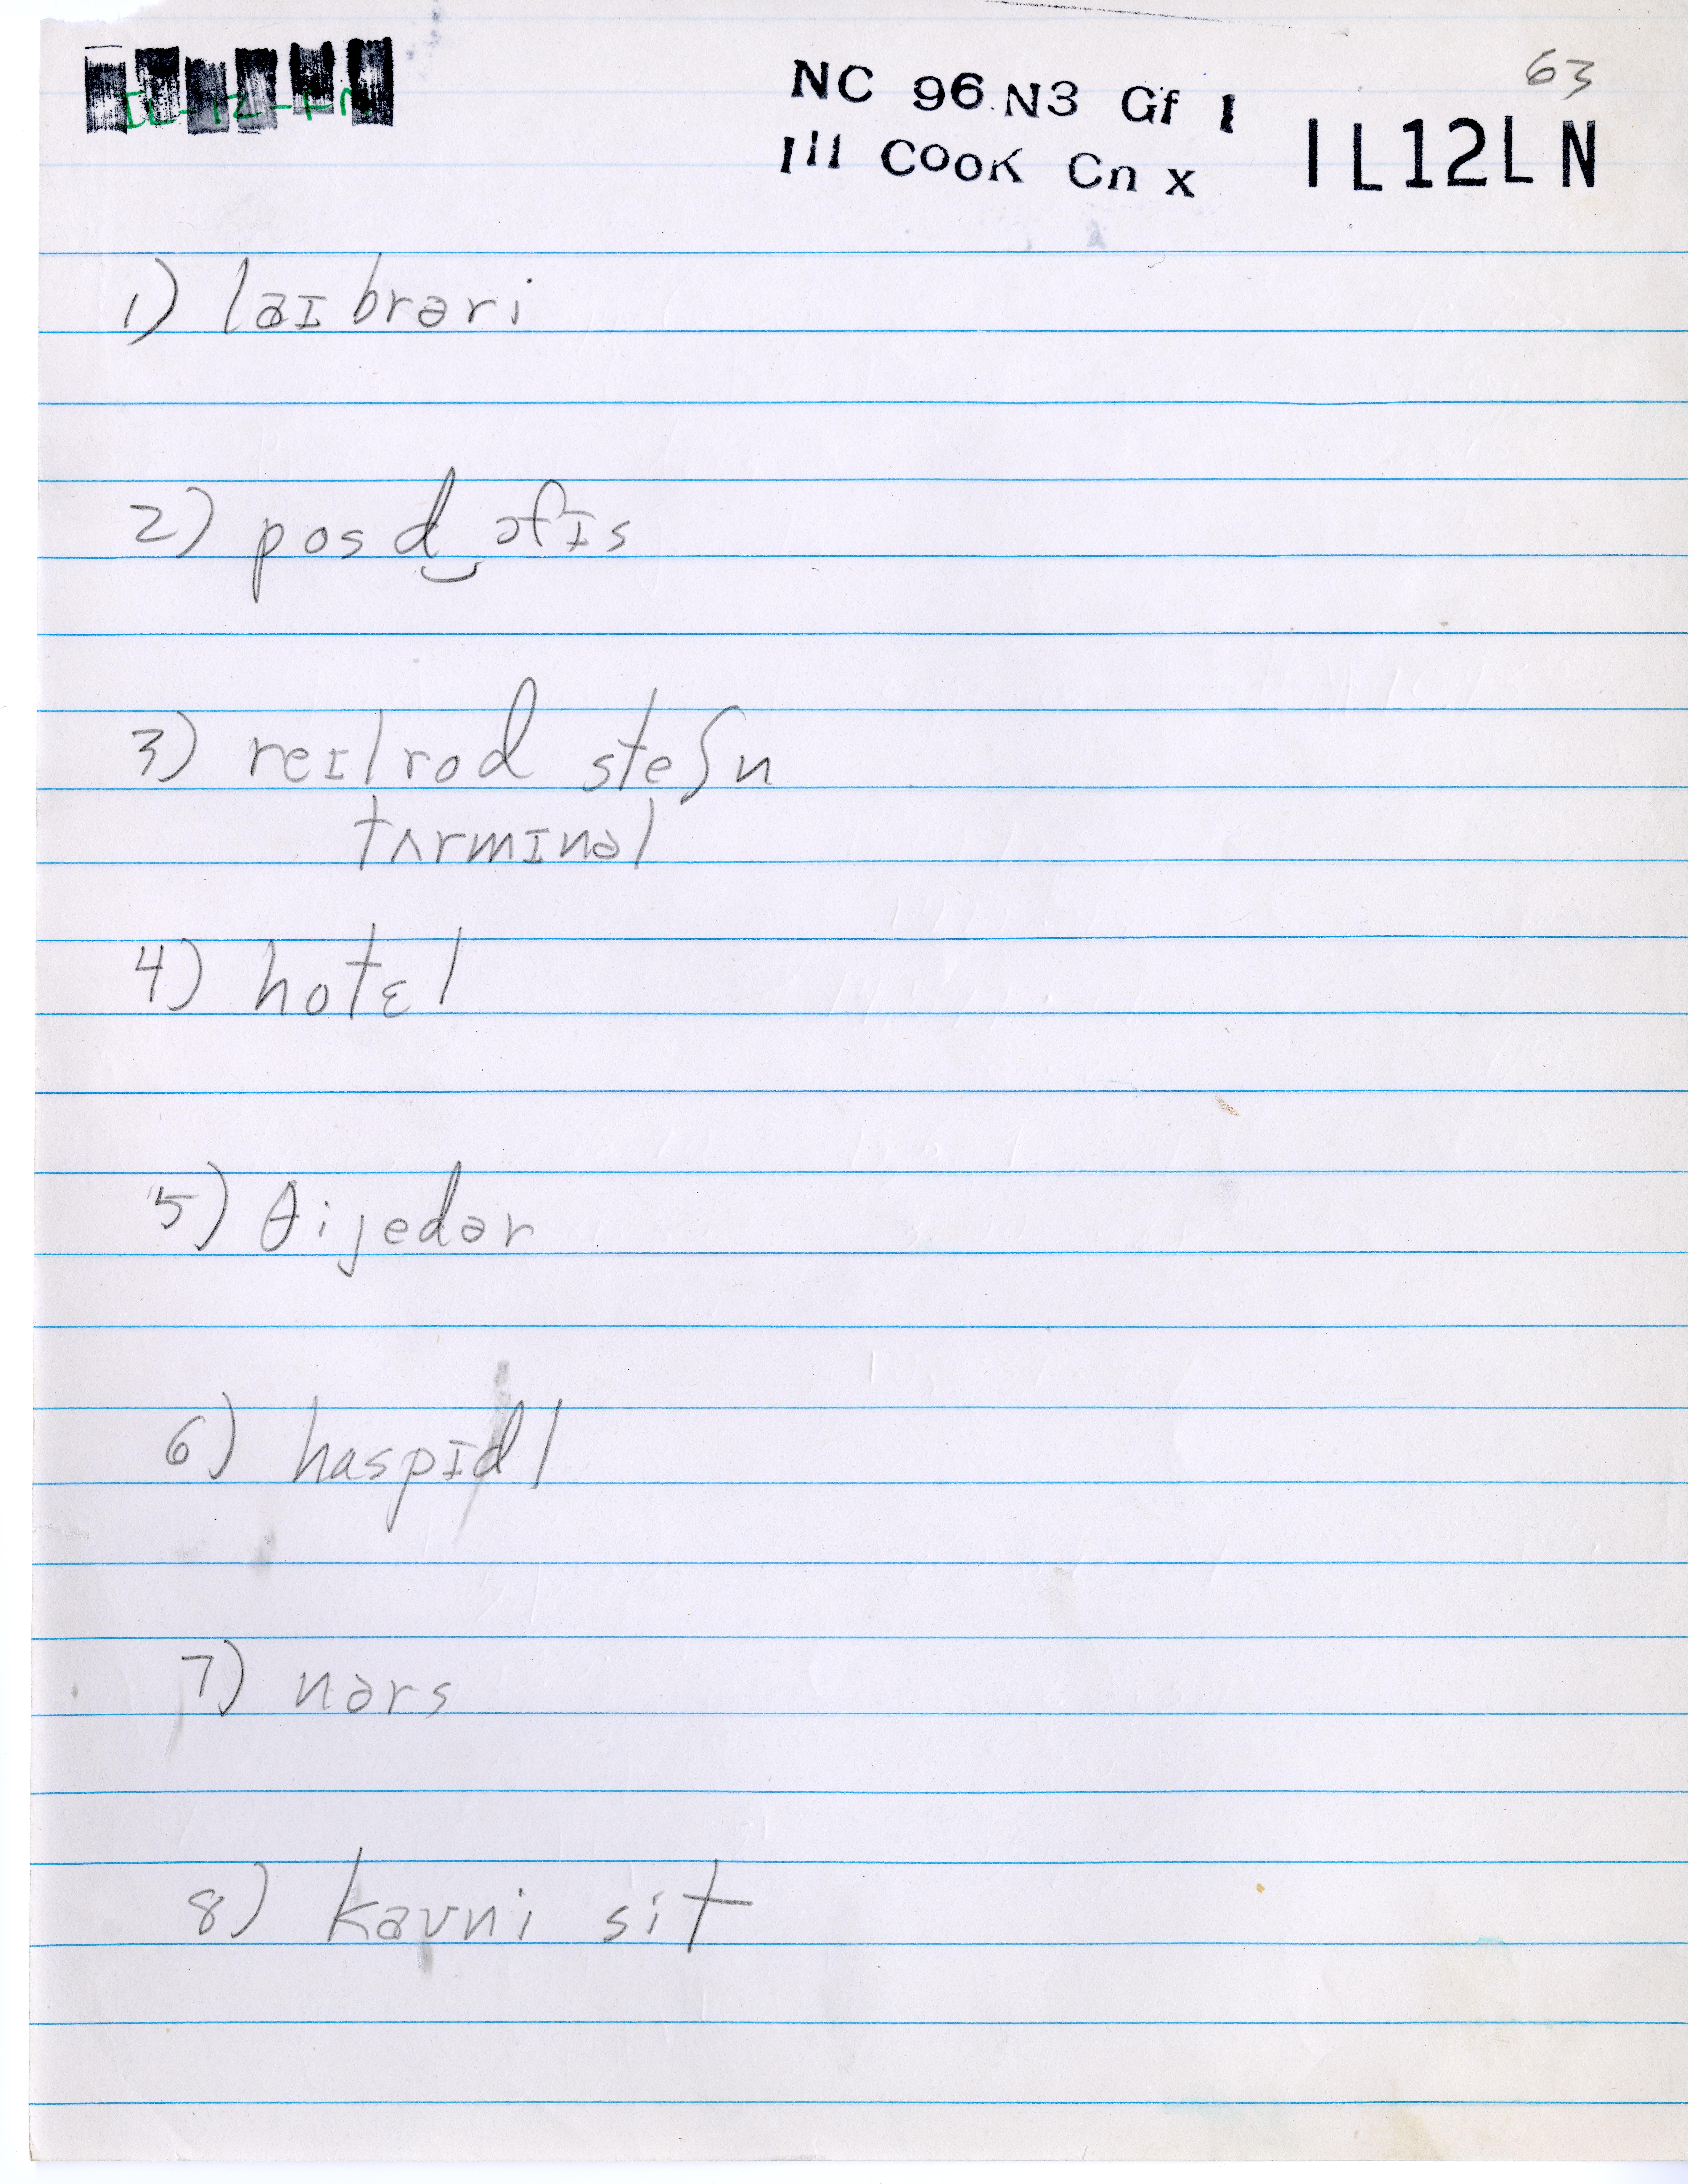 63
NC 96 N3 Gf 1
Ill COOK Cn x
IL12LN
1) laɪbrəri
2) posd‿ɔfɪs
3) reɪlrod steʃn
tʌrmɪnəl
4) hotɛl
5) θijedər
6) haspɪdl
7) nərs
8) kaʊni sit